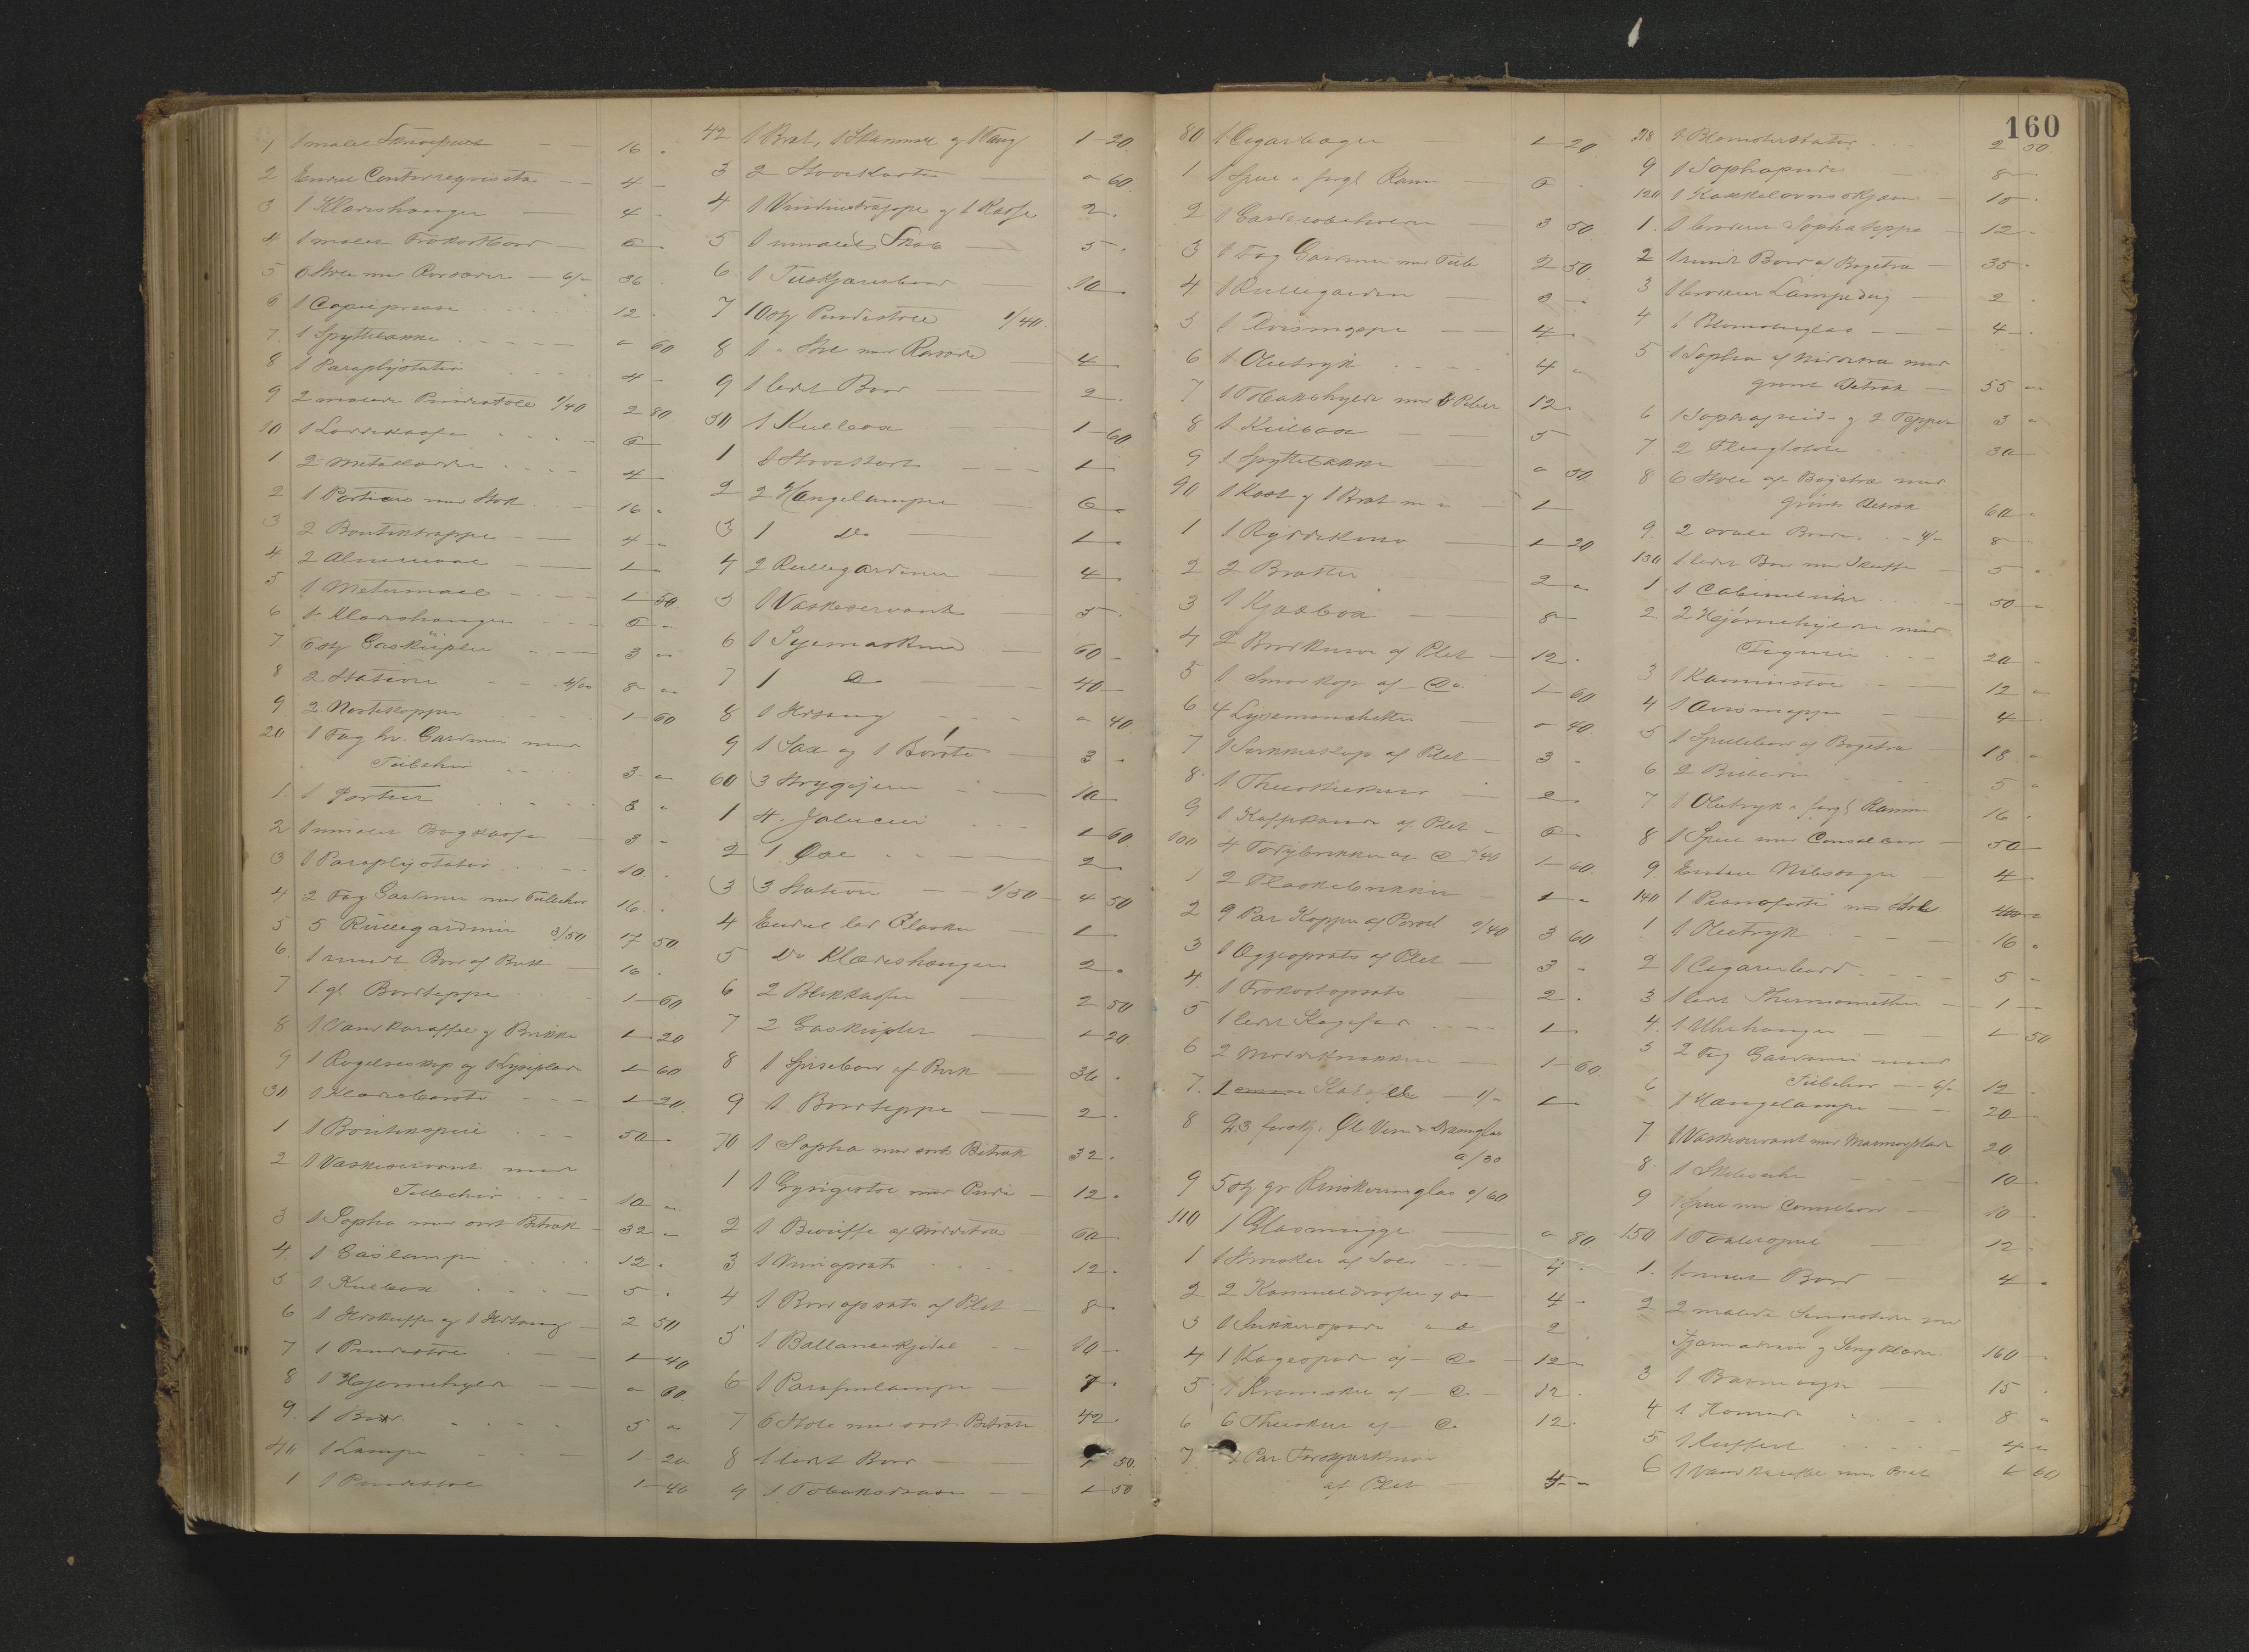 160
1 1 malet Skrivepult — — 16 "
2 Endel Contorreqvisita — — 4 —
3 1 Klædeshænger — 4 -
4 1 malet Frokostbord — 6 —
5 6 Stole med Rørsæder — 6/- 36
6 1 Copiepresse 12 .
7. 1 Spyttebakke " 60
8 1 Paraplystativ 4 —
9 2 malede Pindestole 1/40 2 80
10 1 6 —
1 2 4 —
2 1 Portiere med Stok 16 "
3 2 Boutiktrappe — 4 "
4 2 1 —
5 1 Metermaal 1 50
6 1 Klædeshænger 6 "
7 6 stk Gaskupler 3 "
8 2 Stativer 4/00 8 "
9 2 1 60
20 1 Fag hv. Gardiner med
Tilbehør 3 "
1. 1 Portier 3 "
2 1 umalet Bogkasse 3 "
3 1 Paraplystativ 10 .
4 2 Fag Gardiner med Tilbehør 16 .
5 5 Rullegardiner 3/50 17 50
6. 1 rundt Bord af Birk — 16 .
7 1 gl Bordteppe 1 60
8 1 Vandkaraffel og Brikke 1 20
9 1 1 60
30 1 Klædebørste 1 20
1 1 Boutikspeil 50 —
2 1 Vaskeservant med
Tilbehør 10 "
3 1 Sopha med sort Betræk 32 "
4. 1 Gaslampe 12 .
5 1 Kulbox 5 .
6 1 Ildskuffe og 1 Ildtang 2 50
7 1 Pindestol 1 40
8 1 Hjørnehylde " 60
9. 1 Bord 5 "
40 1 Lampe 1 20
1 1 Pindestol 1 40
42 1 Bræt, 1 Hammer og 1 Tang 1 20
3 2 Støvekoste " 60
4 1 Vinduestrappe og 1 Kasse 2.
5 1 umalet Skab 5 .
6 1 Tilskjærerbord 10
7 10 stk Pindestole 1/40.
8 1 " Stol med Rørsæde 4
9 1 lidet Bord 2 .
50 1 Kulbox 1 60
1 1 1 —
2 2 Hængelamper 6 "
3 1 Do 1 "
4 2 Rullegardiner 4 "
5 1 Vaskeservant 5 .
6 1 Syemaskine 60 —
7 1 Do 40 —
8 1 Ildtang " 40
9 1 Sax og 1 Børste 3 "
60 3 Strygejern 10
1 4. Jalucier 1 60
2 1 Øxe 2
3 3 Stativer — 1/50 — 4 50
4 Endel led Flasker 1
5 Do Klædeshænger 2 "
6 2 Blikkasser 2 50
7 2 Gaskupler 1 20
8 1 Spisebord af Birk — 36 .
9 1 Bordteppe 2 .
70 1 Sopha med sort Betræk 32 .
1 1 Gyngestol med Pude 12 .
2 1 Buffe af Nødetræ 60
3 1 Vinopsats 12 .
4 1 Bordopsats af Plet — 8 "
5 1 Ballancekjedel 10 —
6 1 Parafinlampe 7
7 6 Stole med sort Betræk 42
8 1 lidet Bord 50.
9 1 Tobaksdaase 1 50
80 1 Cigarbæger 1 20
1 1 Speil i forgl Ramme 6 "
2 1 3 50
3 1 Fag Gardiner med Tilb 2 50
4 1 Rullegardin 3 —
5 1 Avismappe 4
6 1 Olietryk 4 "
7 1 Tobakshylde med 8 Piber 12 .
8 1 Kulbox 5
9 1 Spyttebakke " 50
90 1 Kost og 1 Bræt m " 1
1 1 1 20
2 2 Bratter 2 "
3 1 Kjødbox 8 —
4 2 Brødkurve af Plet — 12 .
5 1 Smørkop af Do. 1 60
6 4 Lysemanchetter " 40
7 1 Sukkerskaal af Plet — 3 "
8. 1 Theedækken 2
9 1 Kaffekande af Plet 6
100 4 Toddybrikker af Do a/40 1 60.
1 2 Flaskebrikker 1 "
2 9 Par Kopper af Porcel a/40 3 60
3 1 Ægopsats af Plet — 3 "
4. 1 Frokostopsats 2 .
5 1 lidet Kagefad 1
6 2 1 60.
7. 1 Karaffel — 1/" 1
8 23 forskj. Øl Vin & Dramglas
a/30
9 5 stk gr Rhinskvinsglas a/60.
110 1 Glasmugge " 80.
1 1 Strøske af Sølv 4 .
2 2 4 "
3 1 Sukkerspade " do 2 .
4 1 Kagespade af — Do — 12 "
5 1 af — Do — 12 .
6 6 Theskeer af Do 12 .
7. 1 Par Forskjærkniv
af Plet 4 "
118 1 Blomsterstativ 2 50.
9 1 Sophapude 8 —
120 1 Kakkelovnsskjærm 10
1. 1 broderet Sophateppe 12 -
2 1 rundt Bord af Bøgetræ 35 .
3 1 broderet Lampedug 2 .
4 1 Blomsterglas 4 .
5 1 Sopha af Nødetræ med
grønt Betræk — 55 "
6 1 Sophapude og 2 Tepper 3 "
7 2 30
8 6 Stole af Bøgetræ med
grønt Betræk 60 "
9. 2 ovale Borde 4/- 8 "
130 1 lidet Bord med Skuffe 5 "
1 1 Cabinetuhr 50 "
2 2 Hjørnehylder med
Figurer 20 "
3 1 Kaminstol 12 "
4 1 Avismappe 4 .
5 1 Spillebord af Bøgetræ 18 .
6 2 Billeder 5 "
7 1 Olietryk i forgl Ramme 16 .
8 1 Speil med Consolbord 50 —
9. Endel Nibsager 4
140 1 Pianoforte med Stol 400 "
1 1 Olietryk 16 "
2 1 Cigarbord 5 —
3 1 lidet Thermometer 1 —
4. 1 Uhrhænger 1 50
5 2 Fag Gardiner med
Tilbehør — 6/- 12 .
6 1 Hængelampe 20 —
7 1 Vaskeservant med Marmorplade 20
8. 1 10 —
9 1 Speil med Consolbord 10 —
150 1 Toiletspeil 12 .
1. 1 Bord 4 "
2 2 malede Sengesteder med
Fjærmadrasser og Sengklæder. 160 "
3 1 Barnevogn 15 .
4 1 Komode 8 "
5 1 Kuffert 4 "
6 1 Vandkaraffel med Bræt 1 60